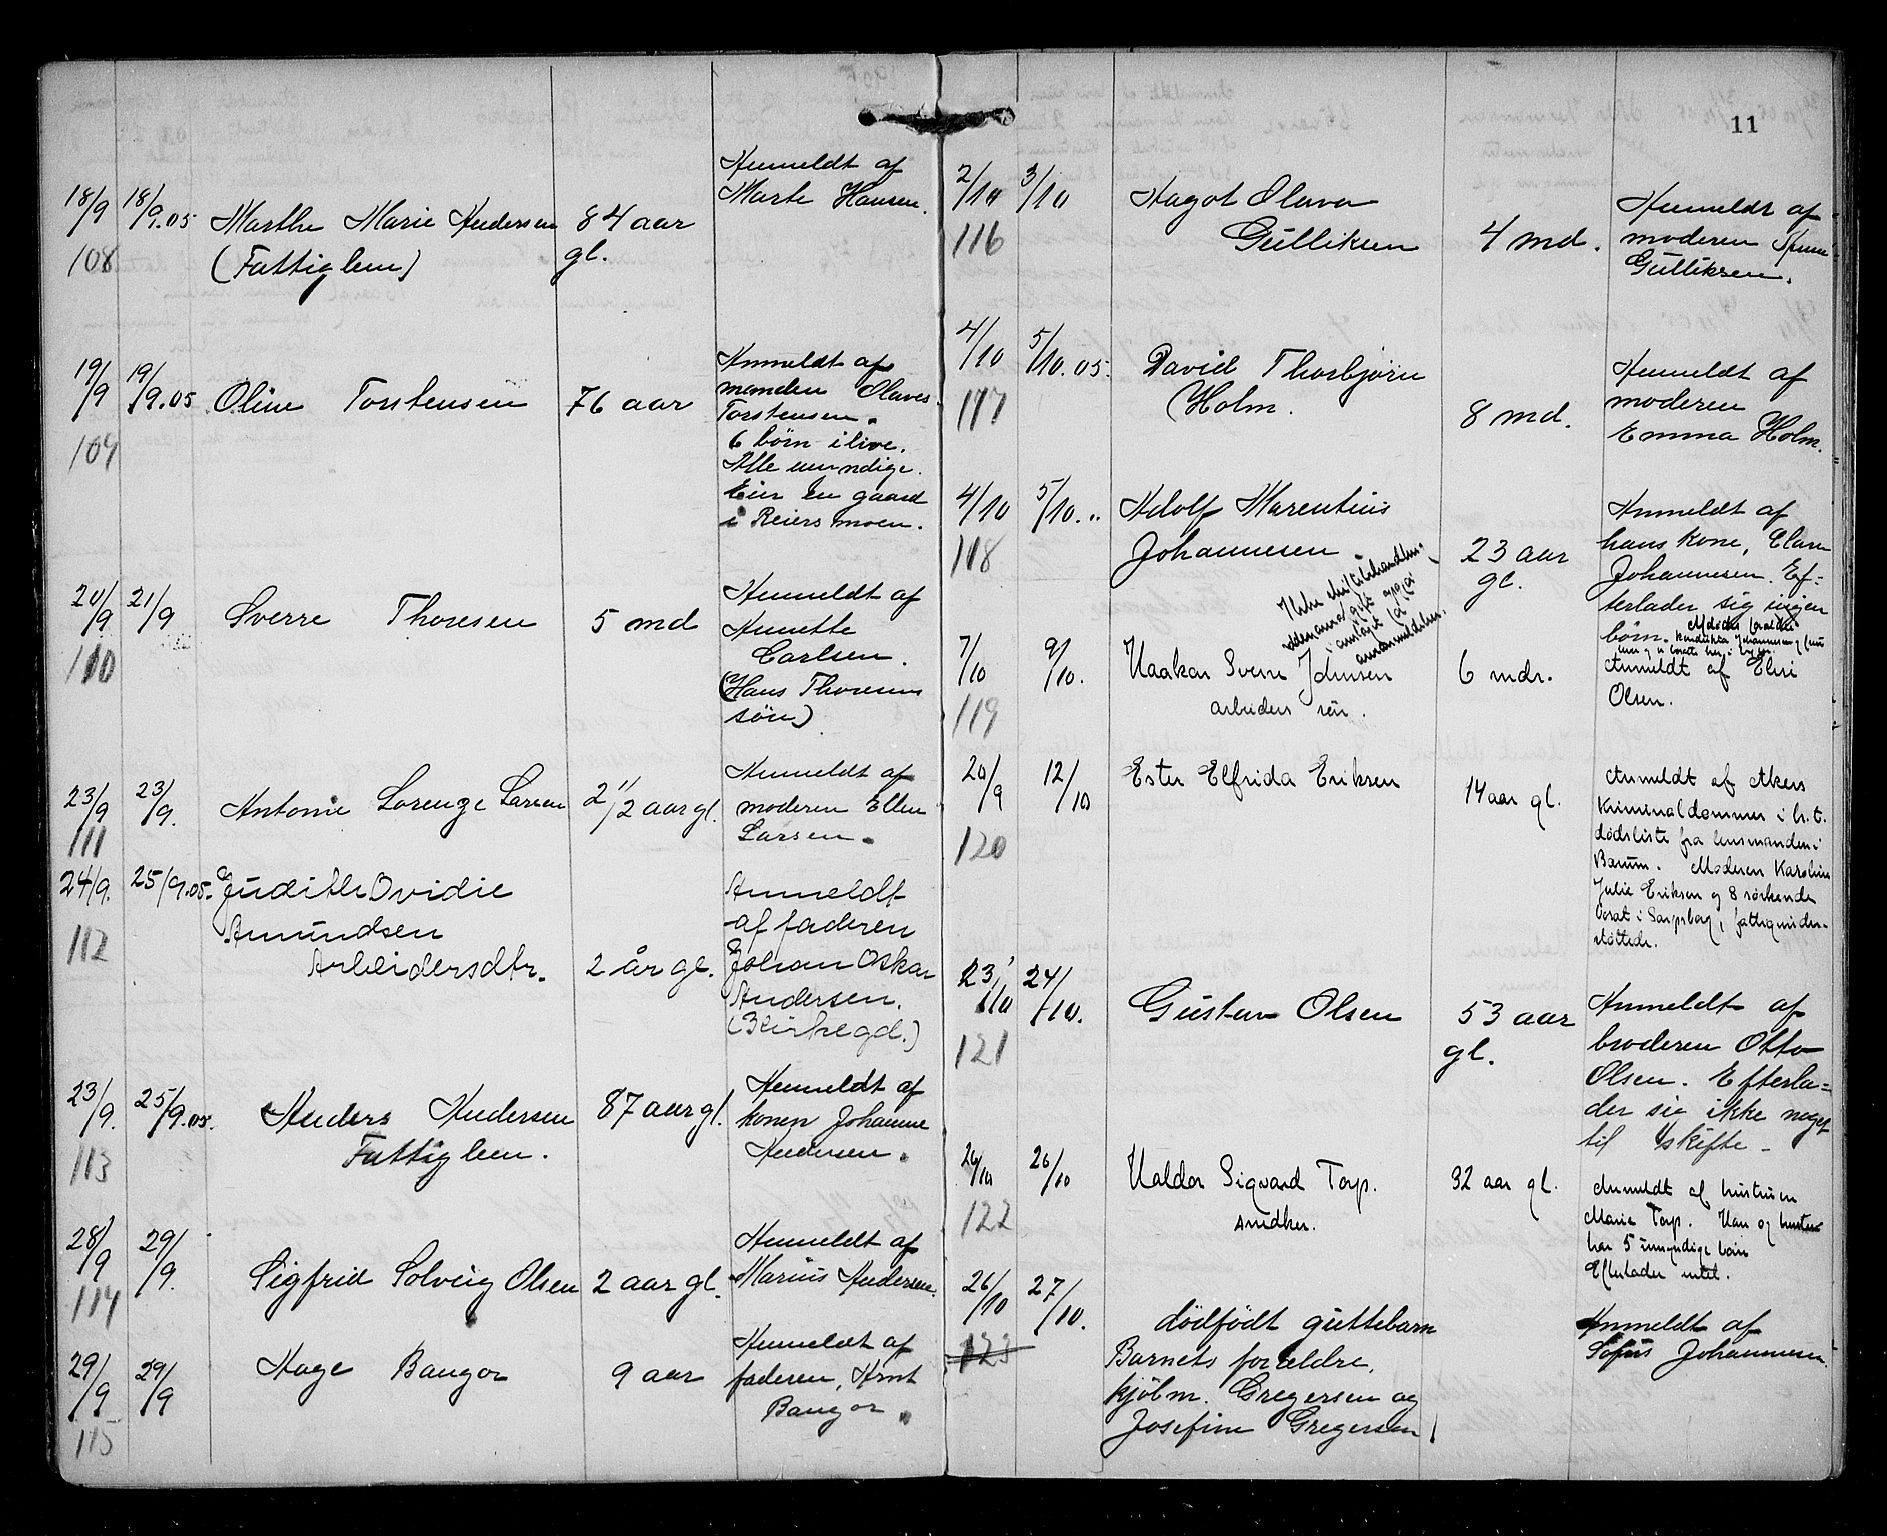 18/9 18/9.05 Marthe Marie Andersen 84 aar gl. Anmeldt af
108 (Fattiglem) Marte Hansen.
19/9 19/9.05 Oline Torstensen 76 aar Anmeldt af
109 manden Olaves
Torstensen.
6 börn ilive.
Alle umyndige.
Eier en gaard
i Reiersmoen.
20/9 21/9 Sverre Thoresen 5 md Anmeldt af
110 Annette
Carlsen.
(Hans Thoresens
sön)
23/9 23/9. Antonie Lorenze Larsen 2 1/2 aar gl. Anmeldt af
111 moderen Ellen
Larsen.
24/9. 25/9.05. Judith Ovidie Anmeldt
112 Amundsen af faderen
Arbeidersdtr. 2 år gl. Johan Oskar
Andersen.
(Kirkegd.)
23/9. 25/9.05. Anders Andersen 87 aar gl. Anmeldt af
113 Fattiglem. konen Johanne
Andersen.
28/9 29/9. Sigfrid Solveig Olsen 2 aar gl. Anmeldt af
114 Marius Andersen.
29/9 29/9 Aage Bangor 9 aar Anmeldt af
115 faderen, Arnt
Bangor.
11
2/10 3/10 Aagot Olava
116 Gulliksen 4 md. Anmeldt af
moderen
Gulliksen.
4/10 5/10.05. David Thorbjørn
117 Holm. 8 md. Anmeldt af
moderen
Emma Holm.
4/10 5/10. " Adolf Marentius
118 Johannesen 23 aar gl. Anmeldt af
hans kone,
Johannesen. Ef=
terlader sig ingen
börn.
7/10 9/10. Haakon Sverre Johnsen 6 mdr. Anmeldt af Elvi
119 arbeiders søn. Olsen.
20/9 12/10 Ester Elfrida Eriksen 14 aar gl. Anmeldt af Akers
120 Kriminaldommer i h.t.
dødsliste fra lensmanden i
Bærum. Moderen Karoline
Julie Eriksen og 8 søskende
bosat i Sarpsborg, fattigunder-
støttede.
23/10 24/10. Gustav Olsen 53 aar gl. Anmeldt af
121 broderen Otto
Olsen. Efterla=
der sig ikke noget
til skifte -
26/10 26/10 Haldor Sigvard Torp. 32 aar gl. Anmeldt af hustruen
122 snedker. Marie Torp. Han og hustru
har 5 umyndige børn
Efterlader intet.
26/10 27/10. dödfödt guttebarn Anmeldt af
123 Barnets forældre, Sofus Johannesen.
kjöbm. Gregersen og
Josefine Gregersen